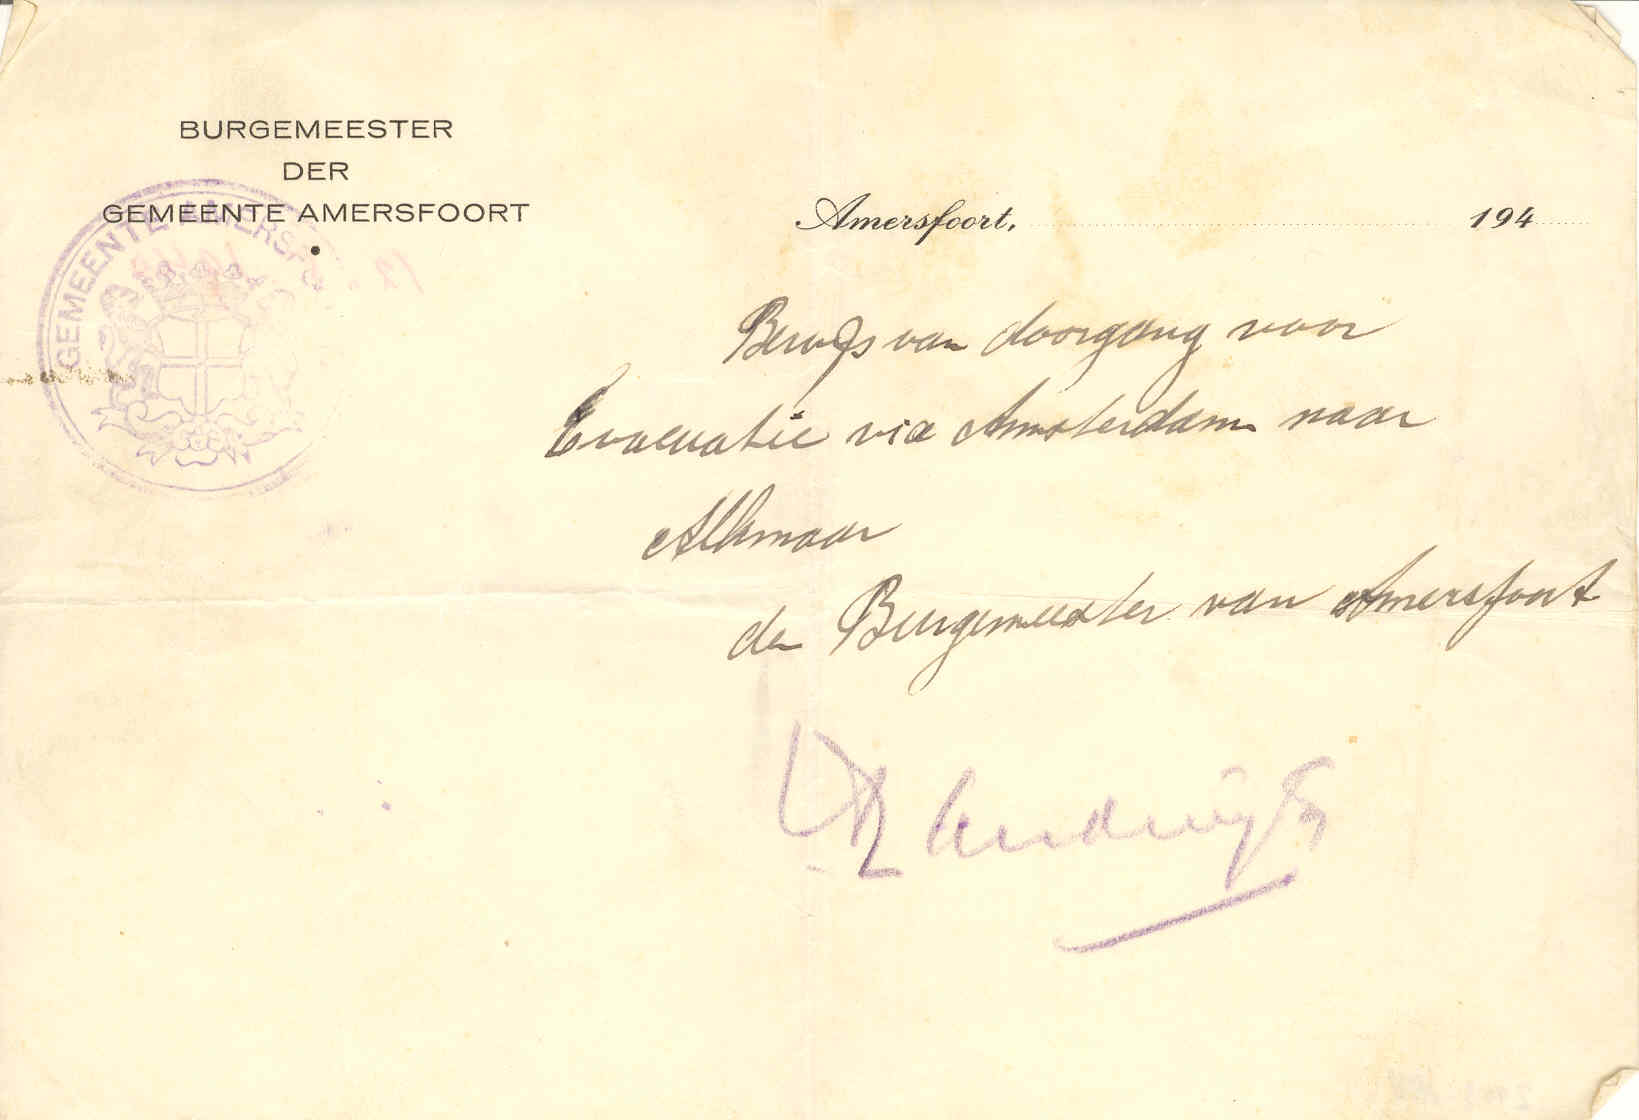 BURGEMEESTER
DER
GEMEENTE AMERSFOORT
GEMEENTE AMERSFO
Amersfoort, 194
Bewijs van doorgang voor
Evacuatie via Amsterdam naar
Alkmaar
de Burgemeester van Amersfoort